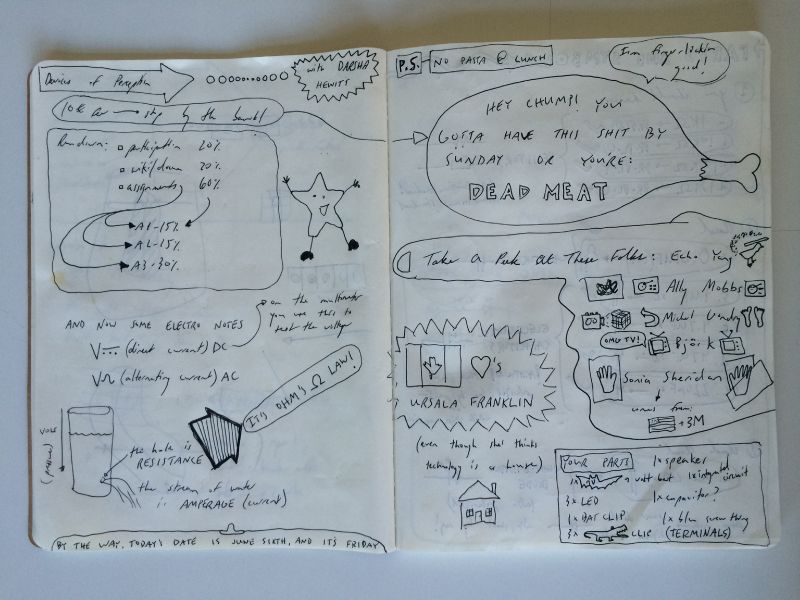 Devices of Perception
with DARSHA
HEWITT
by the
Rundown: participation 20%
20%
assignments 60%
A1-15%
A2-15%
A3-30%
AND NOW SOME ELECTRO NOTES
on the multimeter
you use this to
test the voltage
V (direct current) DC
V (alternating current) AC
IT'S OHM'S Ω LAW!
VOLTS
(pressure)
the hole is
RESISTANCE
the stream of water
is AMPERAGE (current)
BY THE WAY, TODAY'S DATE IS JUNE SIXTH, AND IT'S FRIDAY
P.S. NO PASTA @ LUNCH
I'm finger-lickin
good!
HEY CHUMP! YOU
GOTTA HAVE THIS SHIT BY
SUNDAY OR YOU'RE:
DEAD MEAT
Take a Peek at These Folks: Echo Yang
Ally Mobbs
Michel Gondry
OMG TV! Björk
Sonia Sheridan
comes from:
+3M
♡'s
URSALA FRANKLIN
(even though she thinks
technology is a house)
YOUR PARTS 1x speaker
1x 9 volt batt 1x integrated
circuit
3x LED 1x capacitor?
1x BAT CLIP 1x blue screw thing
3x CLIP (TERMINALS)